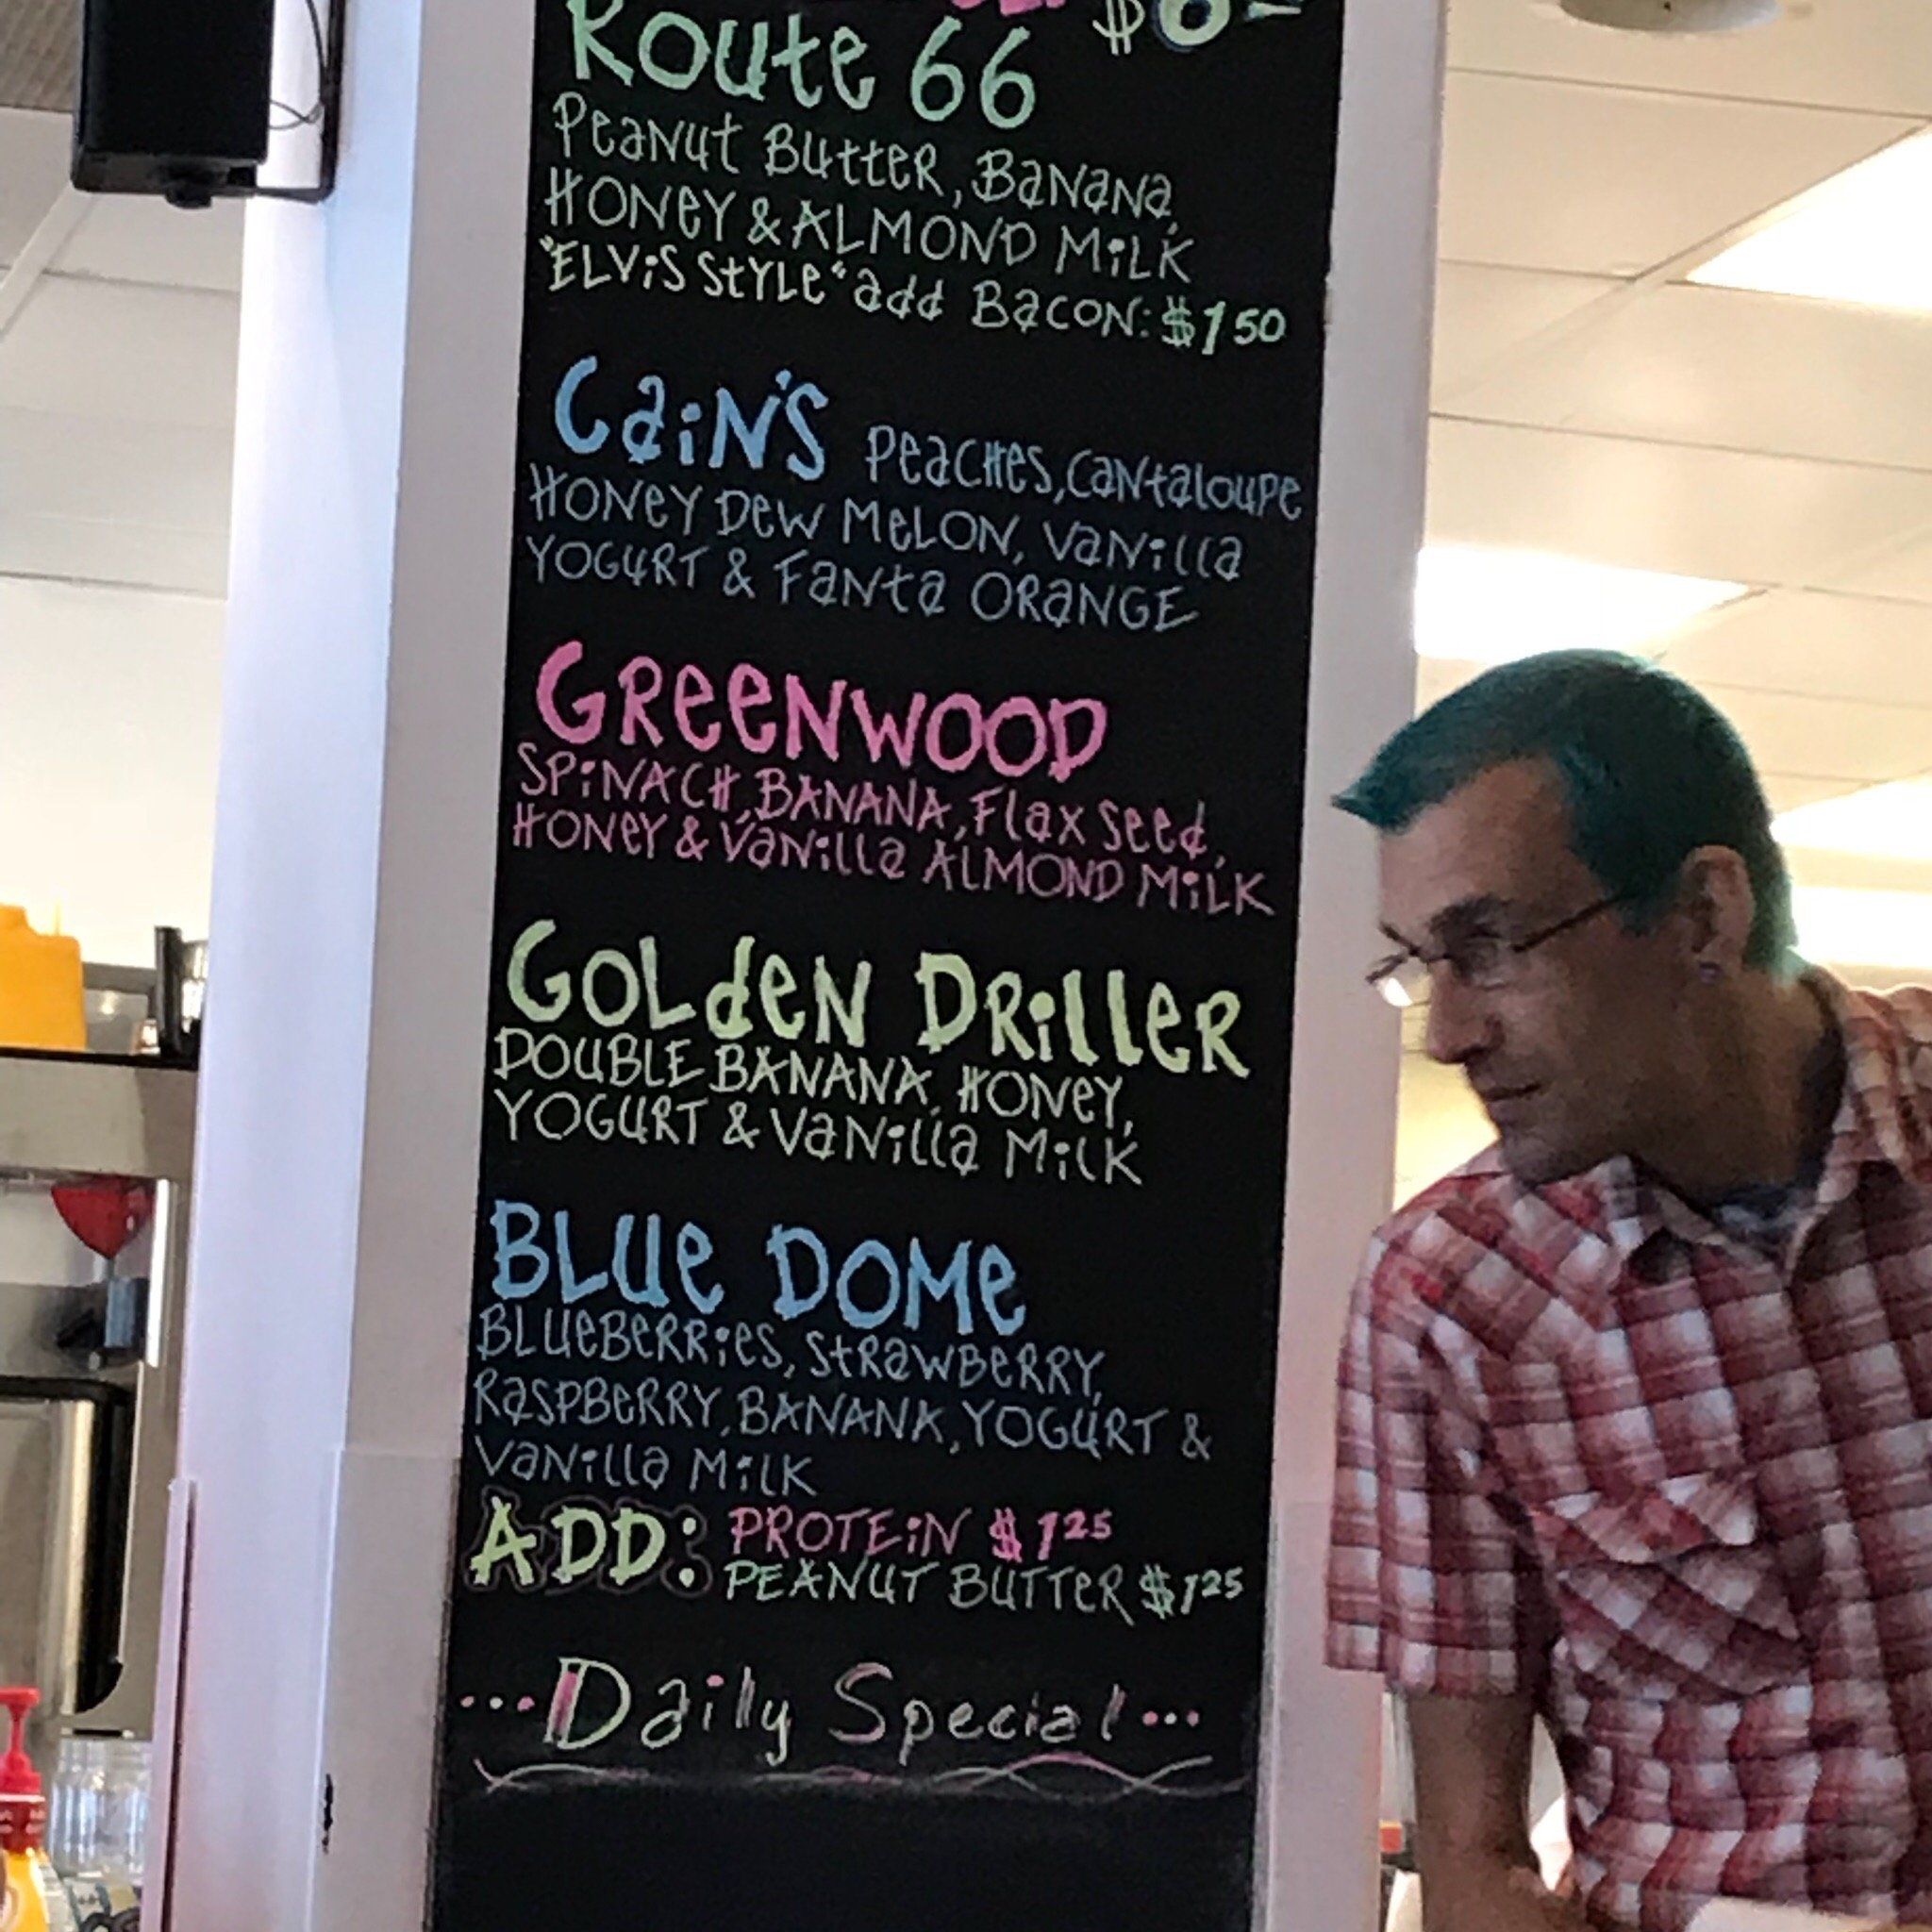 Route 66
Peanut Butter, Banana,
Honey & Almond Milk
"Elvis Style" add Bacon: $1 50
Cain's Peaches, Cantaloupe
Honey Dew Melon, Vanilla
Yogurt & Fanta Orange
Greenwood
Spinach, Banana, Flax Seed,
Honey & Vanilla Almond Milk
Golden Driller
Double Banana, Honey,
Yogurt & Vanilla Milk
Blue Dome
Blueberries, Strawberry,
Raspberry, Banana, Yogurt &
Vanilla Milk
ADD: Protein $1 25
Peanut Butter $1 25
...Daily Special...